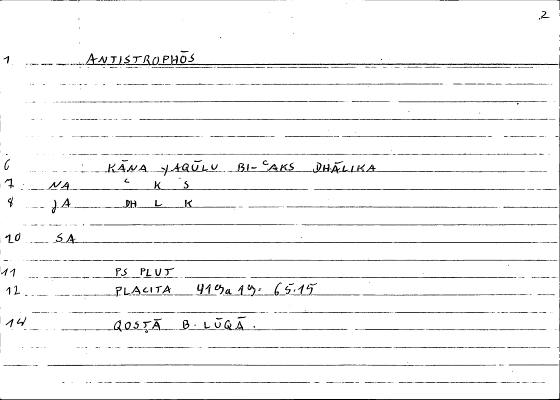 2
1 ANTISTROPHŌS
6 KĀNA YAQŪLU BI-ʿAKS DHĀLIKA
7 NA ʿ K S
8 JA DH L K
10 SA
11 PS PLUT
12 PLACITA 419a19: 65.15
14 QOSṬĀ B. LŪQĀ.